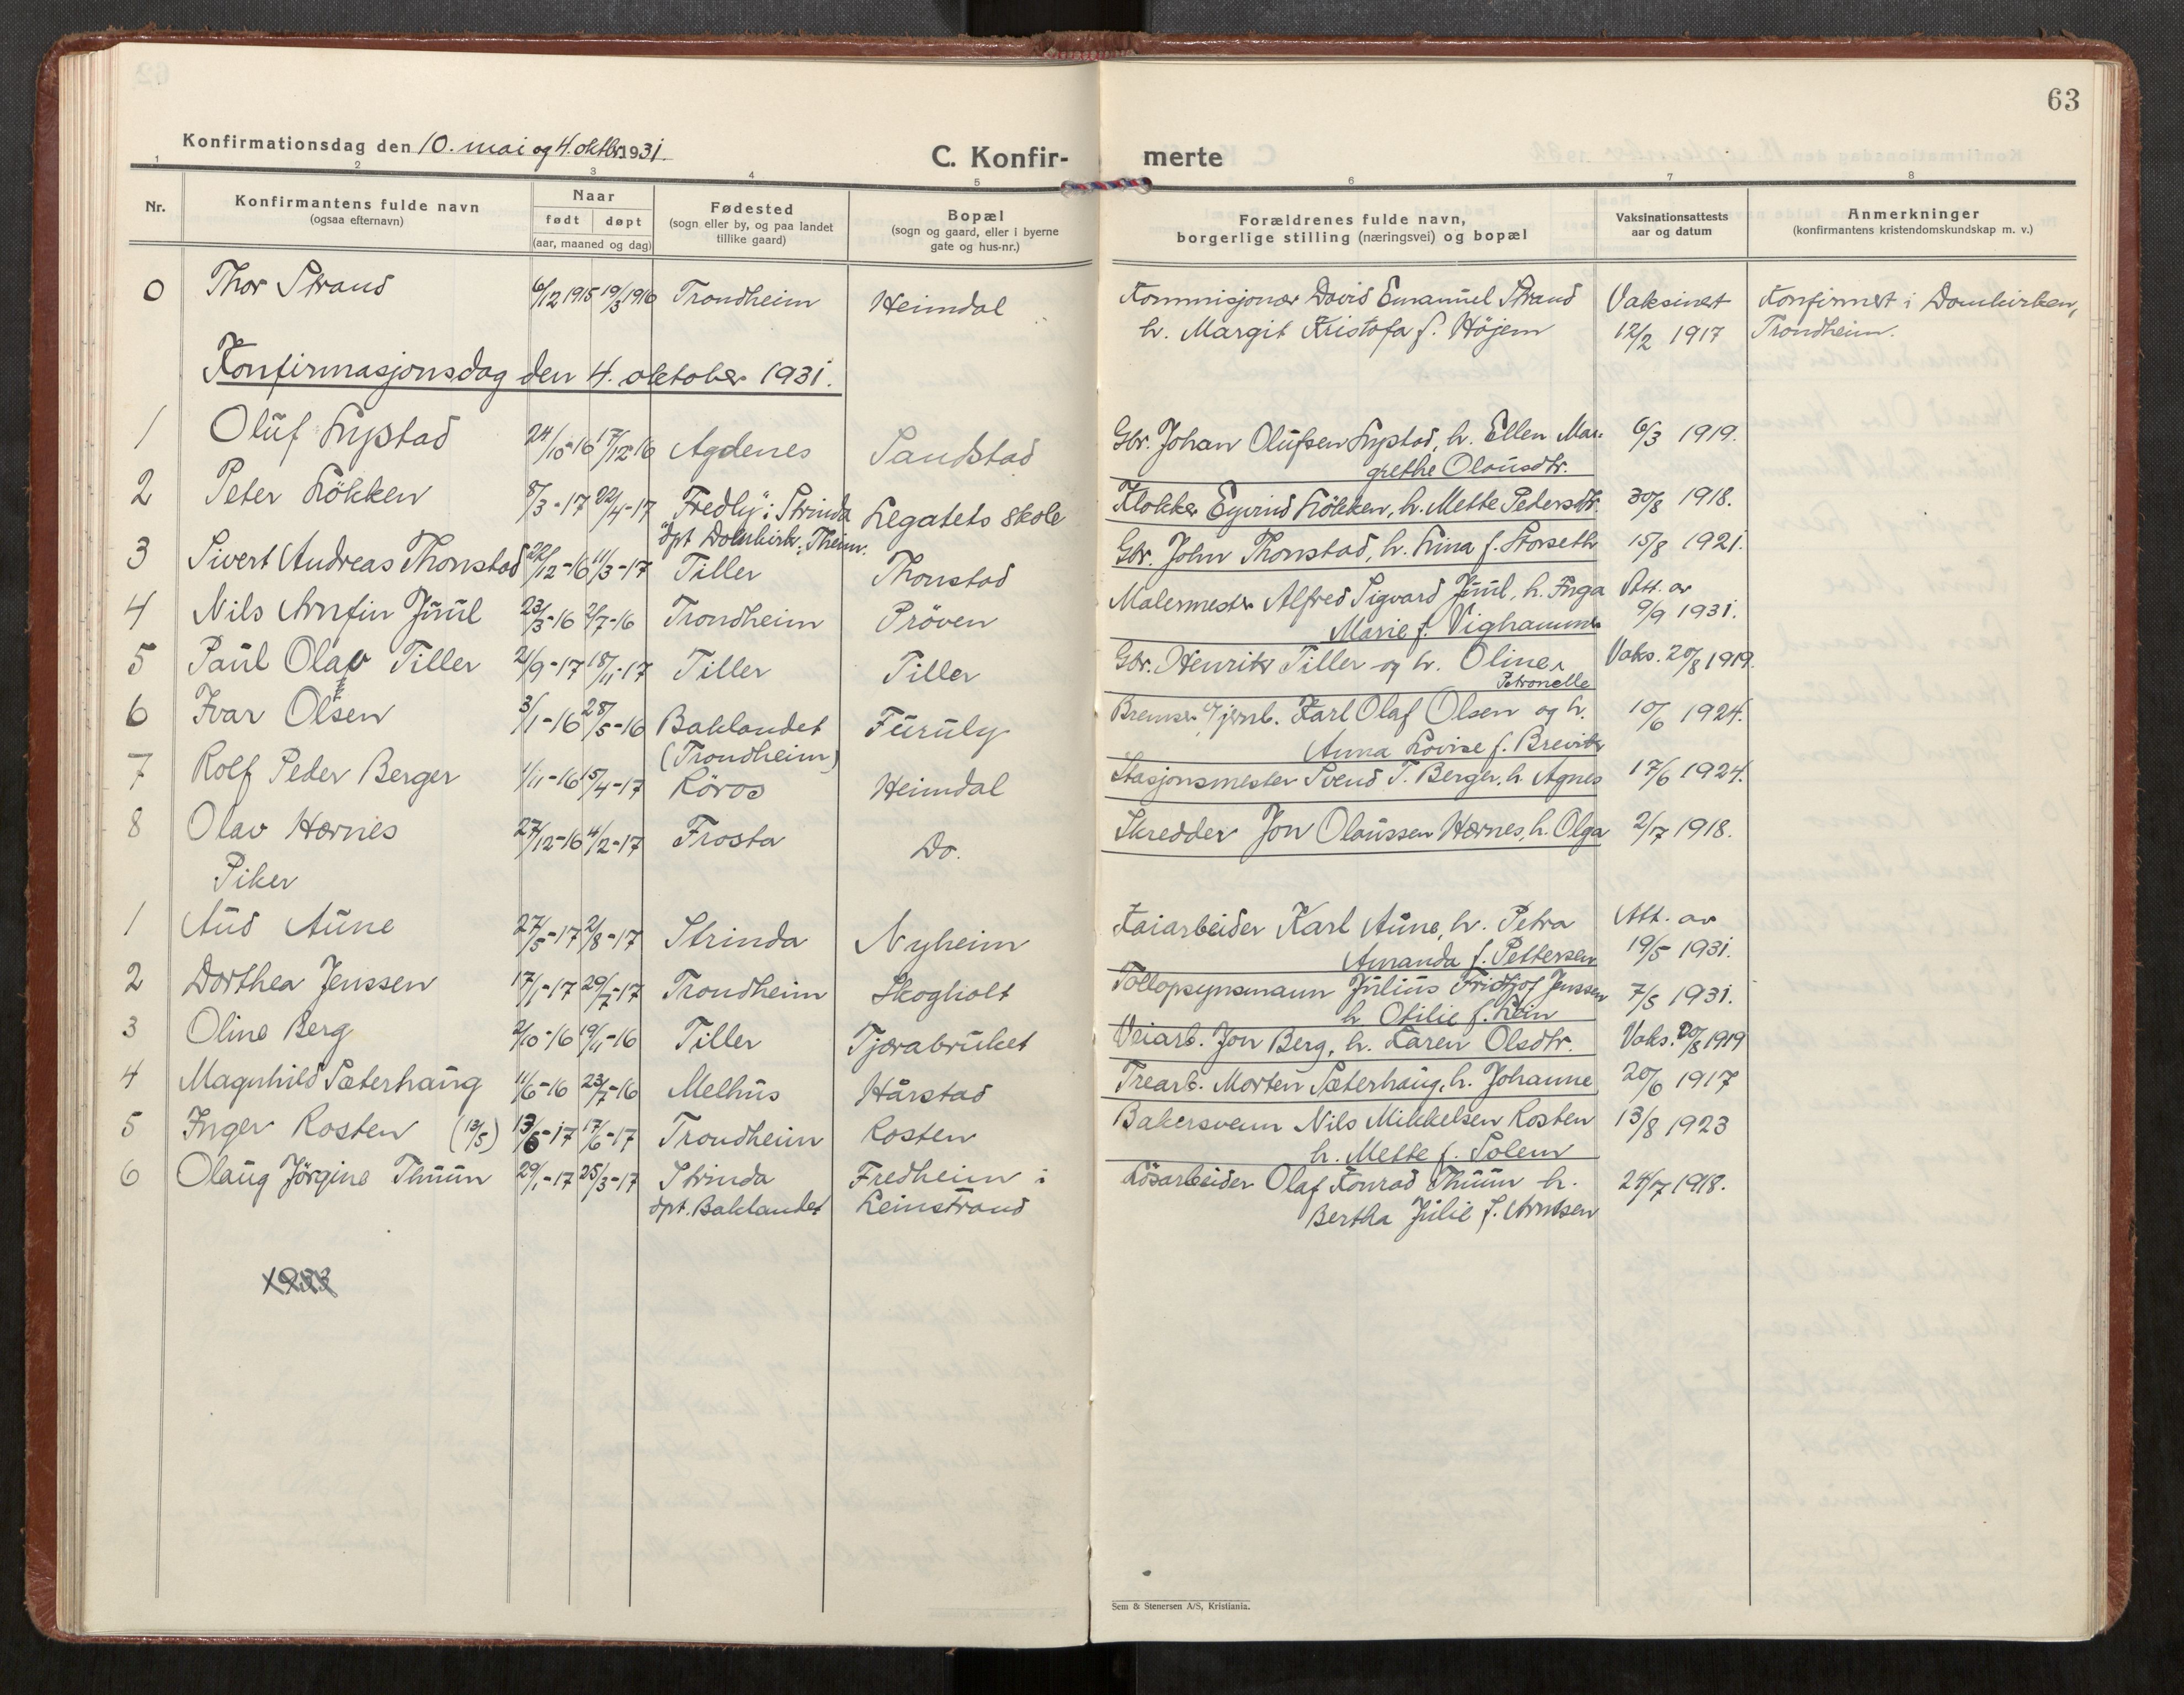 63
Konfirmationsdag den 10. mai og 4. oktbr. 1931.
C. Konfir- merte
1 2 3 4 5 6 7 8
Nr. Konfirmantens fulde navn (ogsaa efternavn) Naar født døpt (aar, maaned og dag) Fødested (sogn eller by, og paa landet tillike gaard) Bopæl (sogn og gaard, eller i byerne gate og hus-nr.) Forældrenes fulde navn, borgerlige stilling (næringsvei) og bopæl Vaksinationsattests aar og datum Anmerkninger (konfirmantens kristendomskundskap m. v.)
0 Thor Strand 6/12 1915 19/3 1916 Trondheim Heimdal Kommisjonær David Emanuel Strand Vaksinert Konfirmert i Domkirken,
h. Margit Kristofa f. Höjem 12/2 1917 Trondheim.
Konfirmasjonsdag den 4. oktober 1931.
1 Oluf Lystad 24/10-16 17/12-16 Agdenes Sandstad Gbr. Johan Olufsen Lystad, h. Ellen Mar- 6/3 1919.
grethe Olausdtr.
2 Peter Lökken 8/3-17 22/4-17 "Fredly" i Strinda Legatets skole Klokker Eyvind Lökken, h. Mette Pedersdtr. 30/8 1918.
dpt Domkirk. Theim.
3 Sivert Andreas Thonstad 22/12-16 11/3-17 Tiller Thonstad Gbr. John Thonstad, h. Lina f. Storseth 15/8 1921.
4 Nils Arnfin Juul 23/3-16 2/7-16 Trondheim Pröven Malermester Alfred Sigvard Juul, h. Inga Att. av
Marie f. Vighammer 9/9 1931.
5 Paul Olav Tiller 21/9-17 18/11-17 Tiller Tiller Gbr. Henrik Tiller og h. Oline Vaks. 20/8 1919.
Petronelle
6 Ivar Olsen 3/1-16 28/5-16 Baklandet Furuly Bremser v/jernb. Karl Olaf Olsen og h. 10/6 1924.
(Trondheim) Anna Lovise f. Brevik
7 Rolf Peder Berger 1/11-16 15/4-17 Röros Heimdal Stasjonsmester Svend T. Berger, h. Agnes 17/6 1924.
8 Olav Hærnes 27/12-16 4/2-17 Frosta Do. Skredder Jon Olaussen Hærnes, h. Olga 2/7 1918.
Piker
1 Aud Aune 27/5-17 2/8-17 Strinda Nyheim Kaiarbeider Karl Aune, h. Petra Att. av
Amanda f. Pettersen 19/5 1931.
2 Dorthea Jenssen 17/1-17 29/7-17 Trondheim Skogholt Tollopsynsmann Julius Fridtjof Jenssen 7/5 1931.
h. Otilie f. Lein
3 Oline Berg 2/10-16 19/11-16 Tiller Tjærabruket Veiarb. Jon Berg, h. Karen Olsdtr. Vaks. 20/8 1919
4 Magnhild Sæterhaug 11/6-16 23/7-16 Melhus Hårstad Trearb. Morten Sæterhaug, h. Johanne 20/6 1917
5 Inger Rosten (13/5) 13/5-17 17/6-17 Trondheim Rosten Bakersvenn Nils Mikkelsen Rosten 13/8 1923
h. Mette f. Solem
6 Olaug Jörgine Thuun 29/1-17 25/3-17 Strinda Fredheim i Lösarbeider Olaf Konrad Thuun h. 24/7 1918.
dpt. Baklandet Leinstrand Bertha Julie f. Arntsen
Sem & Stenersen A/S, Kristiania.